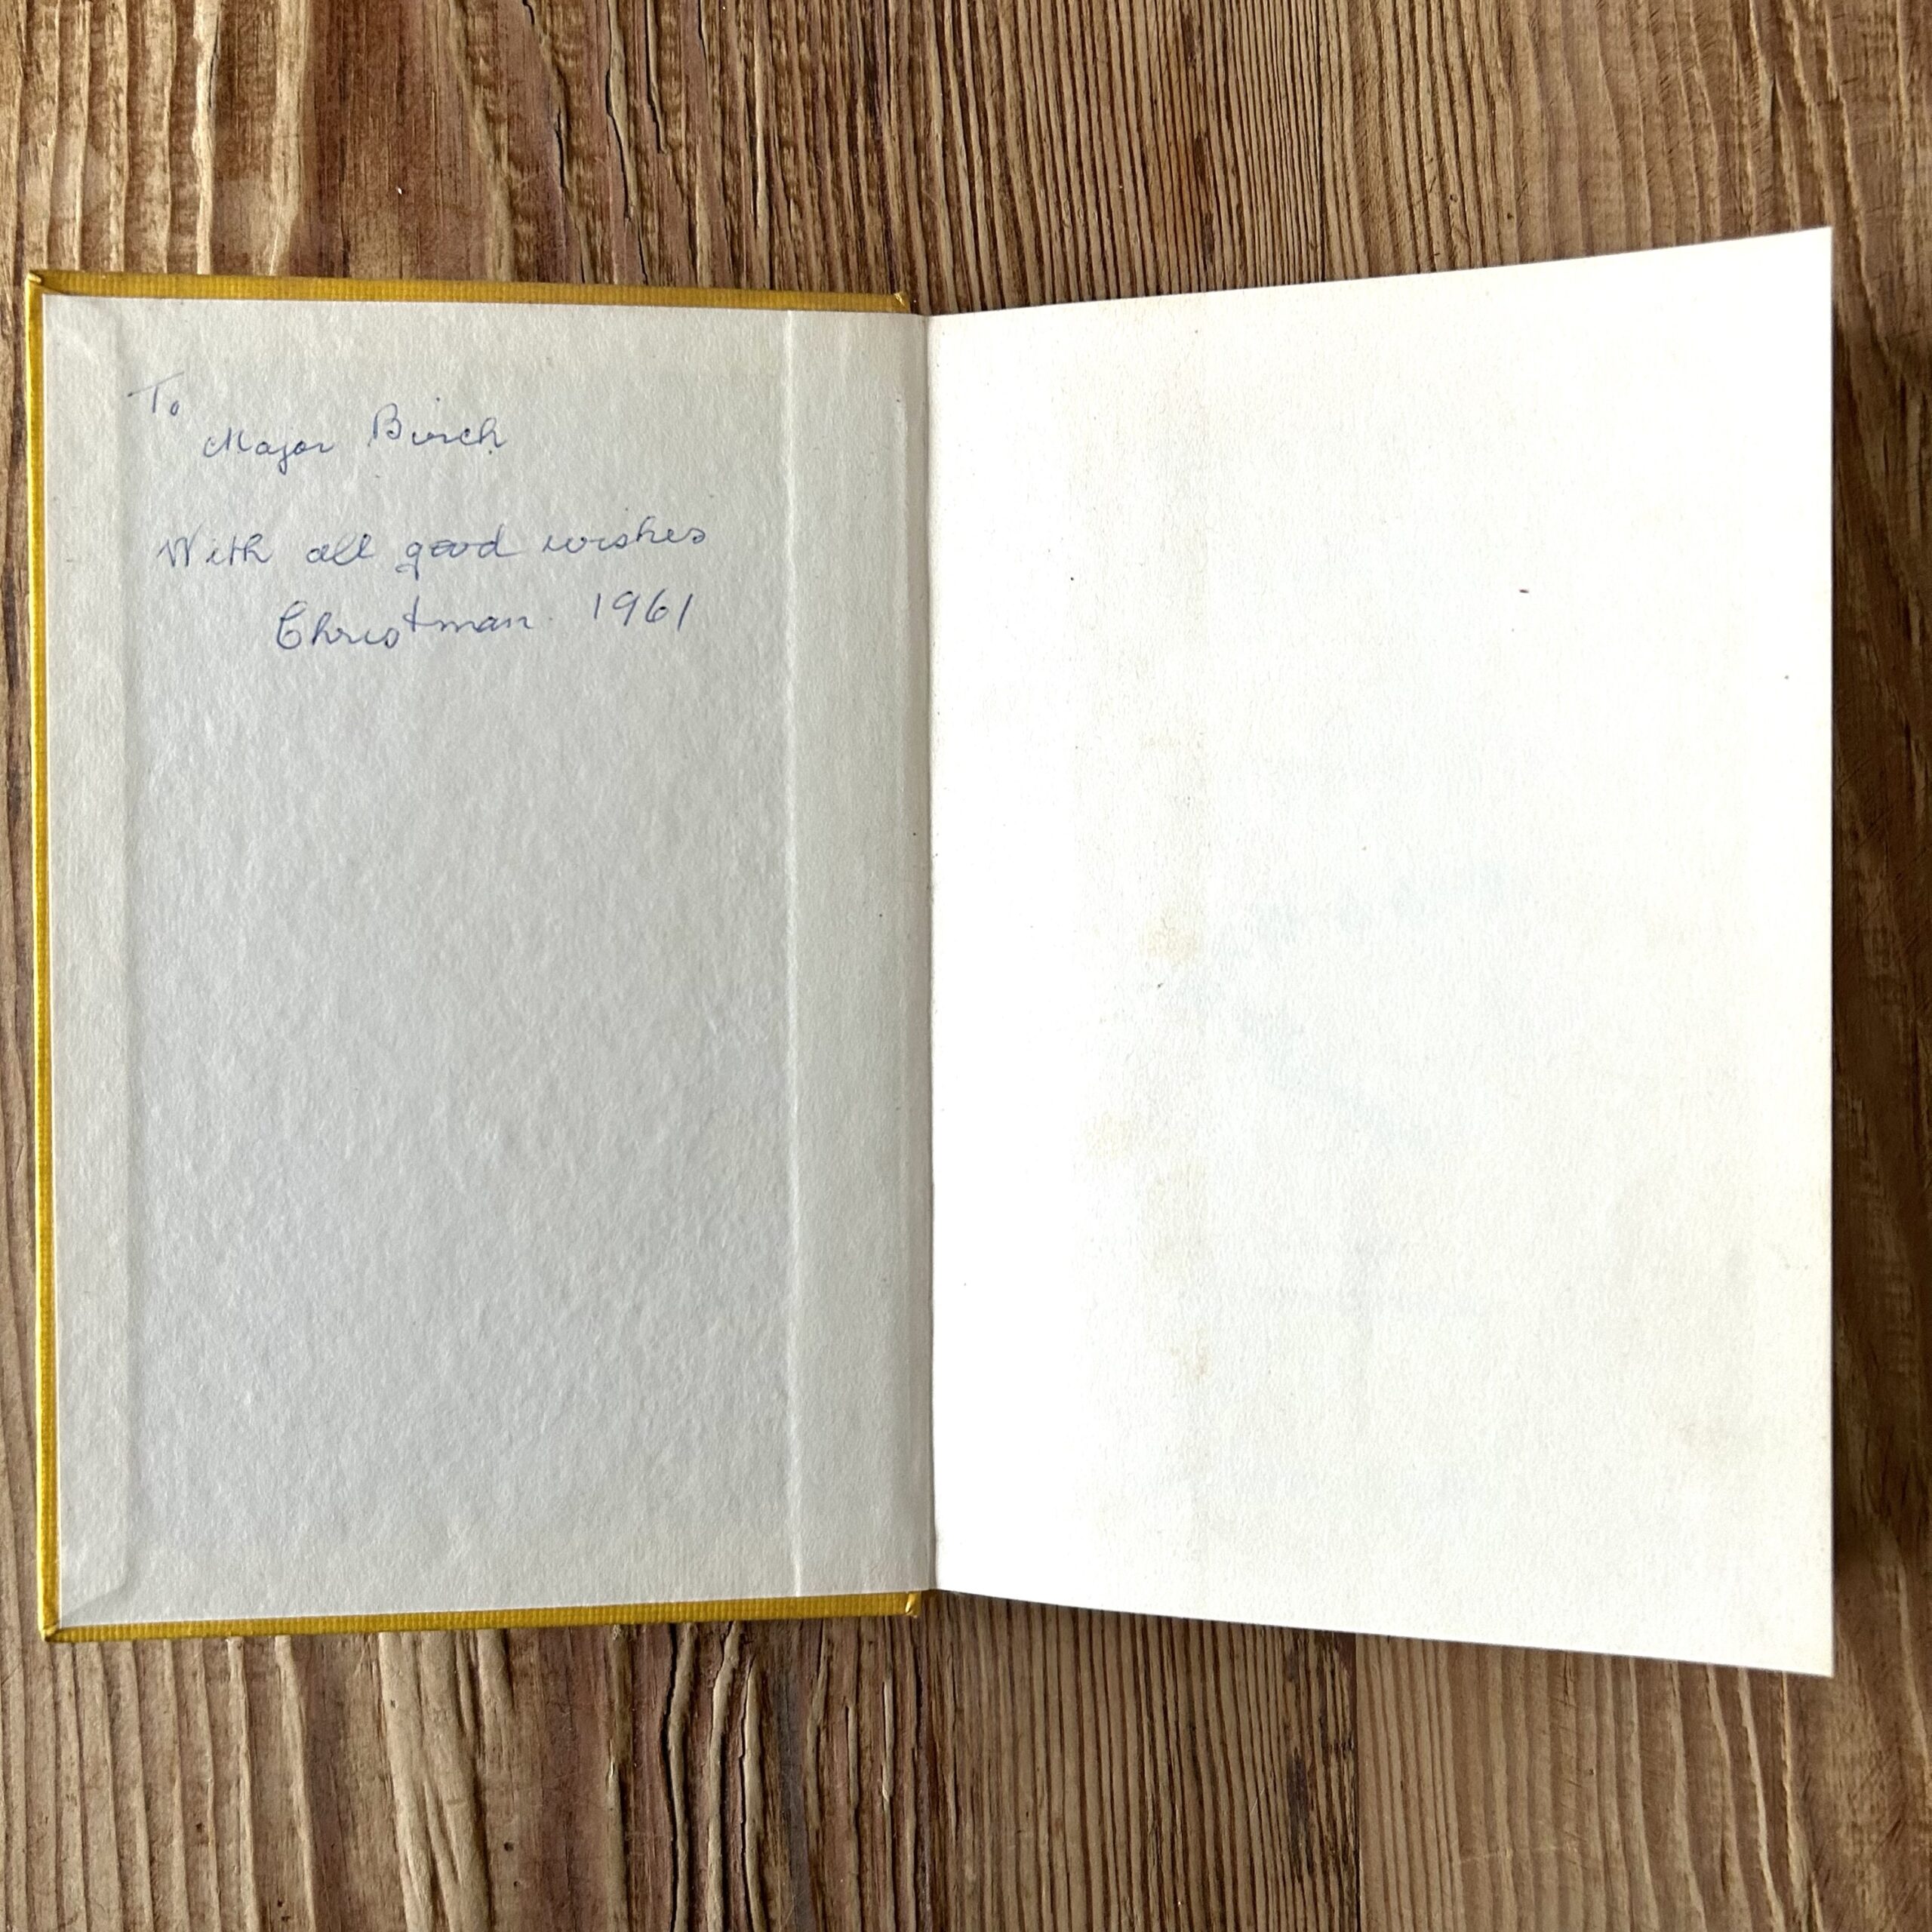 To
Major Birch
With all good wishes
Christmas 1961